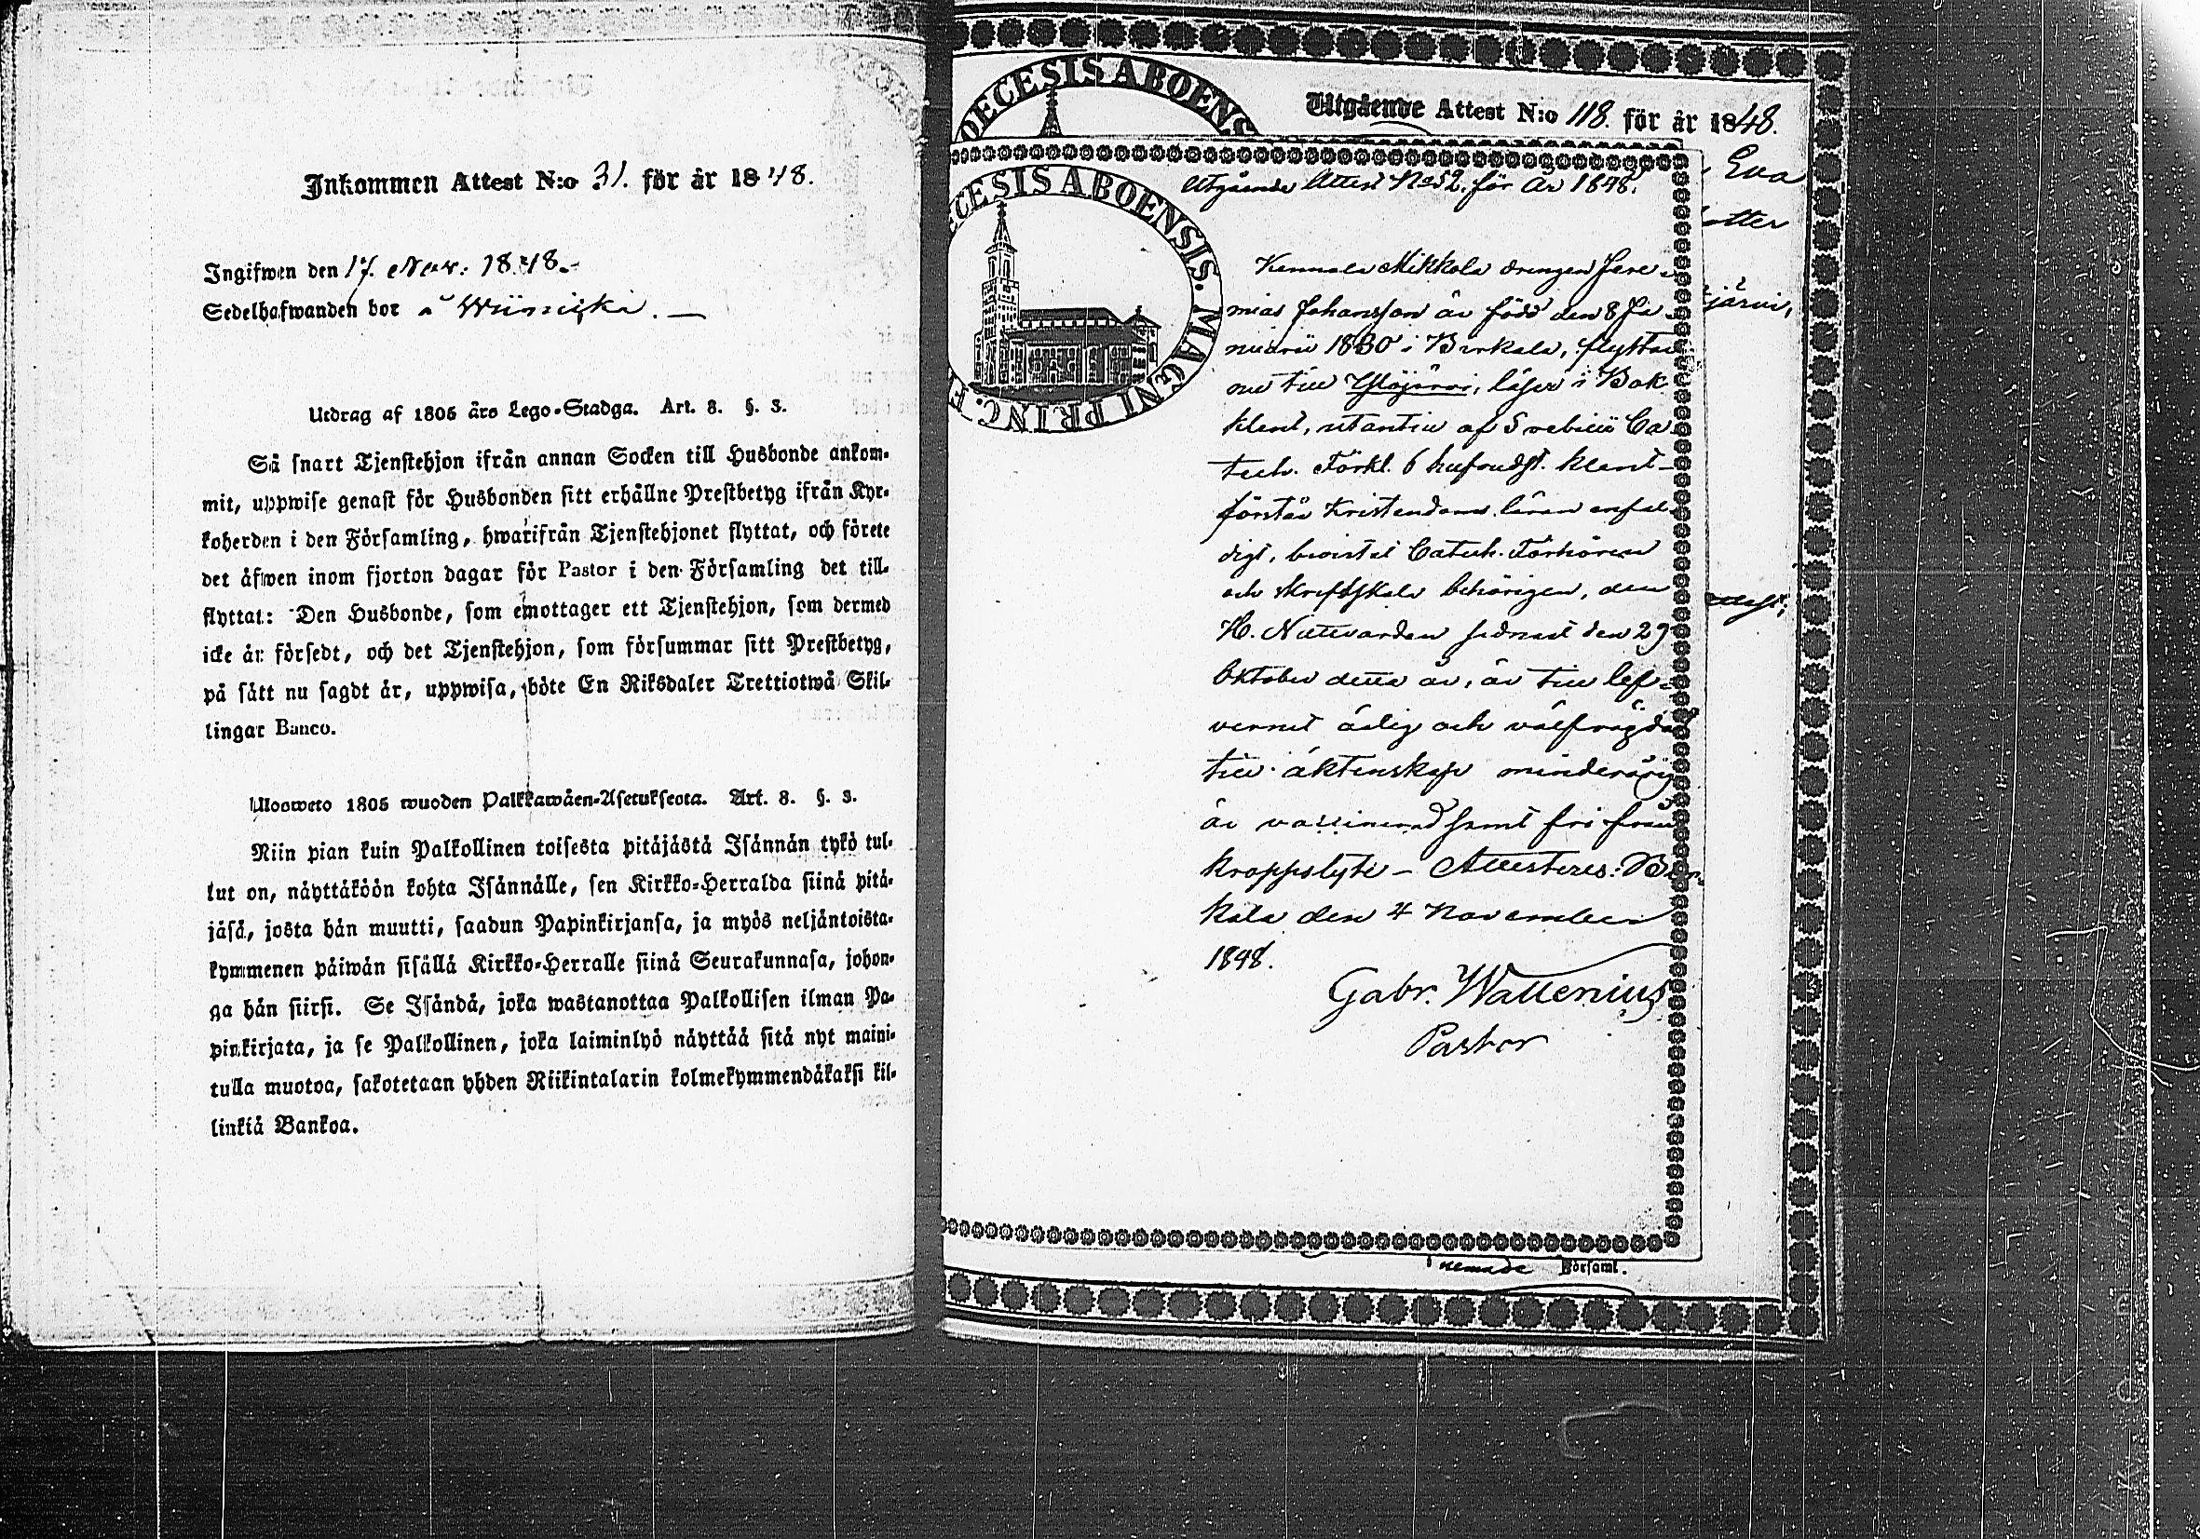 Inkommen Attest N:o 31. för år 1848.
Ingifwen den 17. Nov. 1848.
Sedelhafwanden bor å
Utdrag af 1805 års Lego-Stadga. Art. 8. §. 3.
Så snart Tjenstehjon ifrån annan Socken till Husbonde ankom-
mit, uppwise genast för Husbonden sitt erhållne Prestbetyg ifrån Kyr-
koherden i den Församling, hwarifrån Tjenstehjonet flyttat, och förete
det äfwen inom fjorton dagar för Pastor i den Församling det till-
flyttat: Den Husbonde, som emottager ett Tjenstehjon, som dermed
icke är försedt, och det Tjenstehjon, som försummar sitt Prestbetyg,
på sätt nu sagdt är, uppwisa, böte En Riksdaler Trettiotwå Skil-
lingar Banco.
Ulosweto 1805 wuoden Palkkawäen-Asetuksesta. Art. 8. §. 3.
Niin pian kuin Palkollinen toisesta pitäjästä Isännän tykö tul-
lut on, näyttäköön kohta Isännälle, sen Kirkko-Herralda siinä pitä-
jäsä, josta hän muutti, saadun Papinkirjansa, ja myös neljäntoista-
kymmenen päiwän sisällä Kirkko-Herralle siinä Seurakunnasa, johon-
ga hän siirsi. Se Isändä, joka wastanottaa Palkollisen ilman Pa-
pinkirjata, ja se Palkollinen, joka laiminlyö näyttää sitä nyt maini-
tulla muotoa, sakotetaan yhden Riikintalarin kolmekymmendäkaksi kil-
linkiä Bankoa.
DIOECESIS ABOENS
Utgående Attest N:o 118. för år 1848.
Eva
otter
järvi,
ECESIS ABOENSIS. MAGNI PRINC. F
Utgående Attest No 52. för År 1848.
Mikkola drengen Jere-
mias Johansson är född den 8 Ja-
nuarii 1830 i Birkala, flyttar
nu till Ylöjärvi, läser i Bok
klent, utantill af Svebilii Ca-
tech. Förkl. 6 hufvudst. klent
förstår Kristendoms läran enfal-
digt, bevistat Catech. Förhören
och Skriftskola behörigen, den
H. Nattvarden sednast den 29
Oktober detta år, är till lef-
vernet ärlig och välfrägdad
till äktenskap minderårig
är vaccinerad samt fri från
kroppslyte – Attesteres: Bir-
kala den 4 November
1848.
Gabr. Wallenius
Pastor
nemnde Församl.